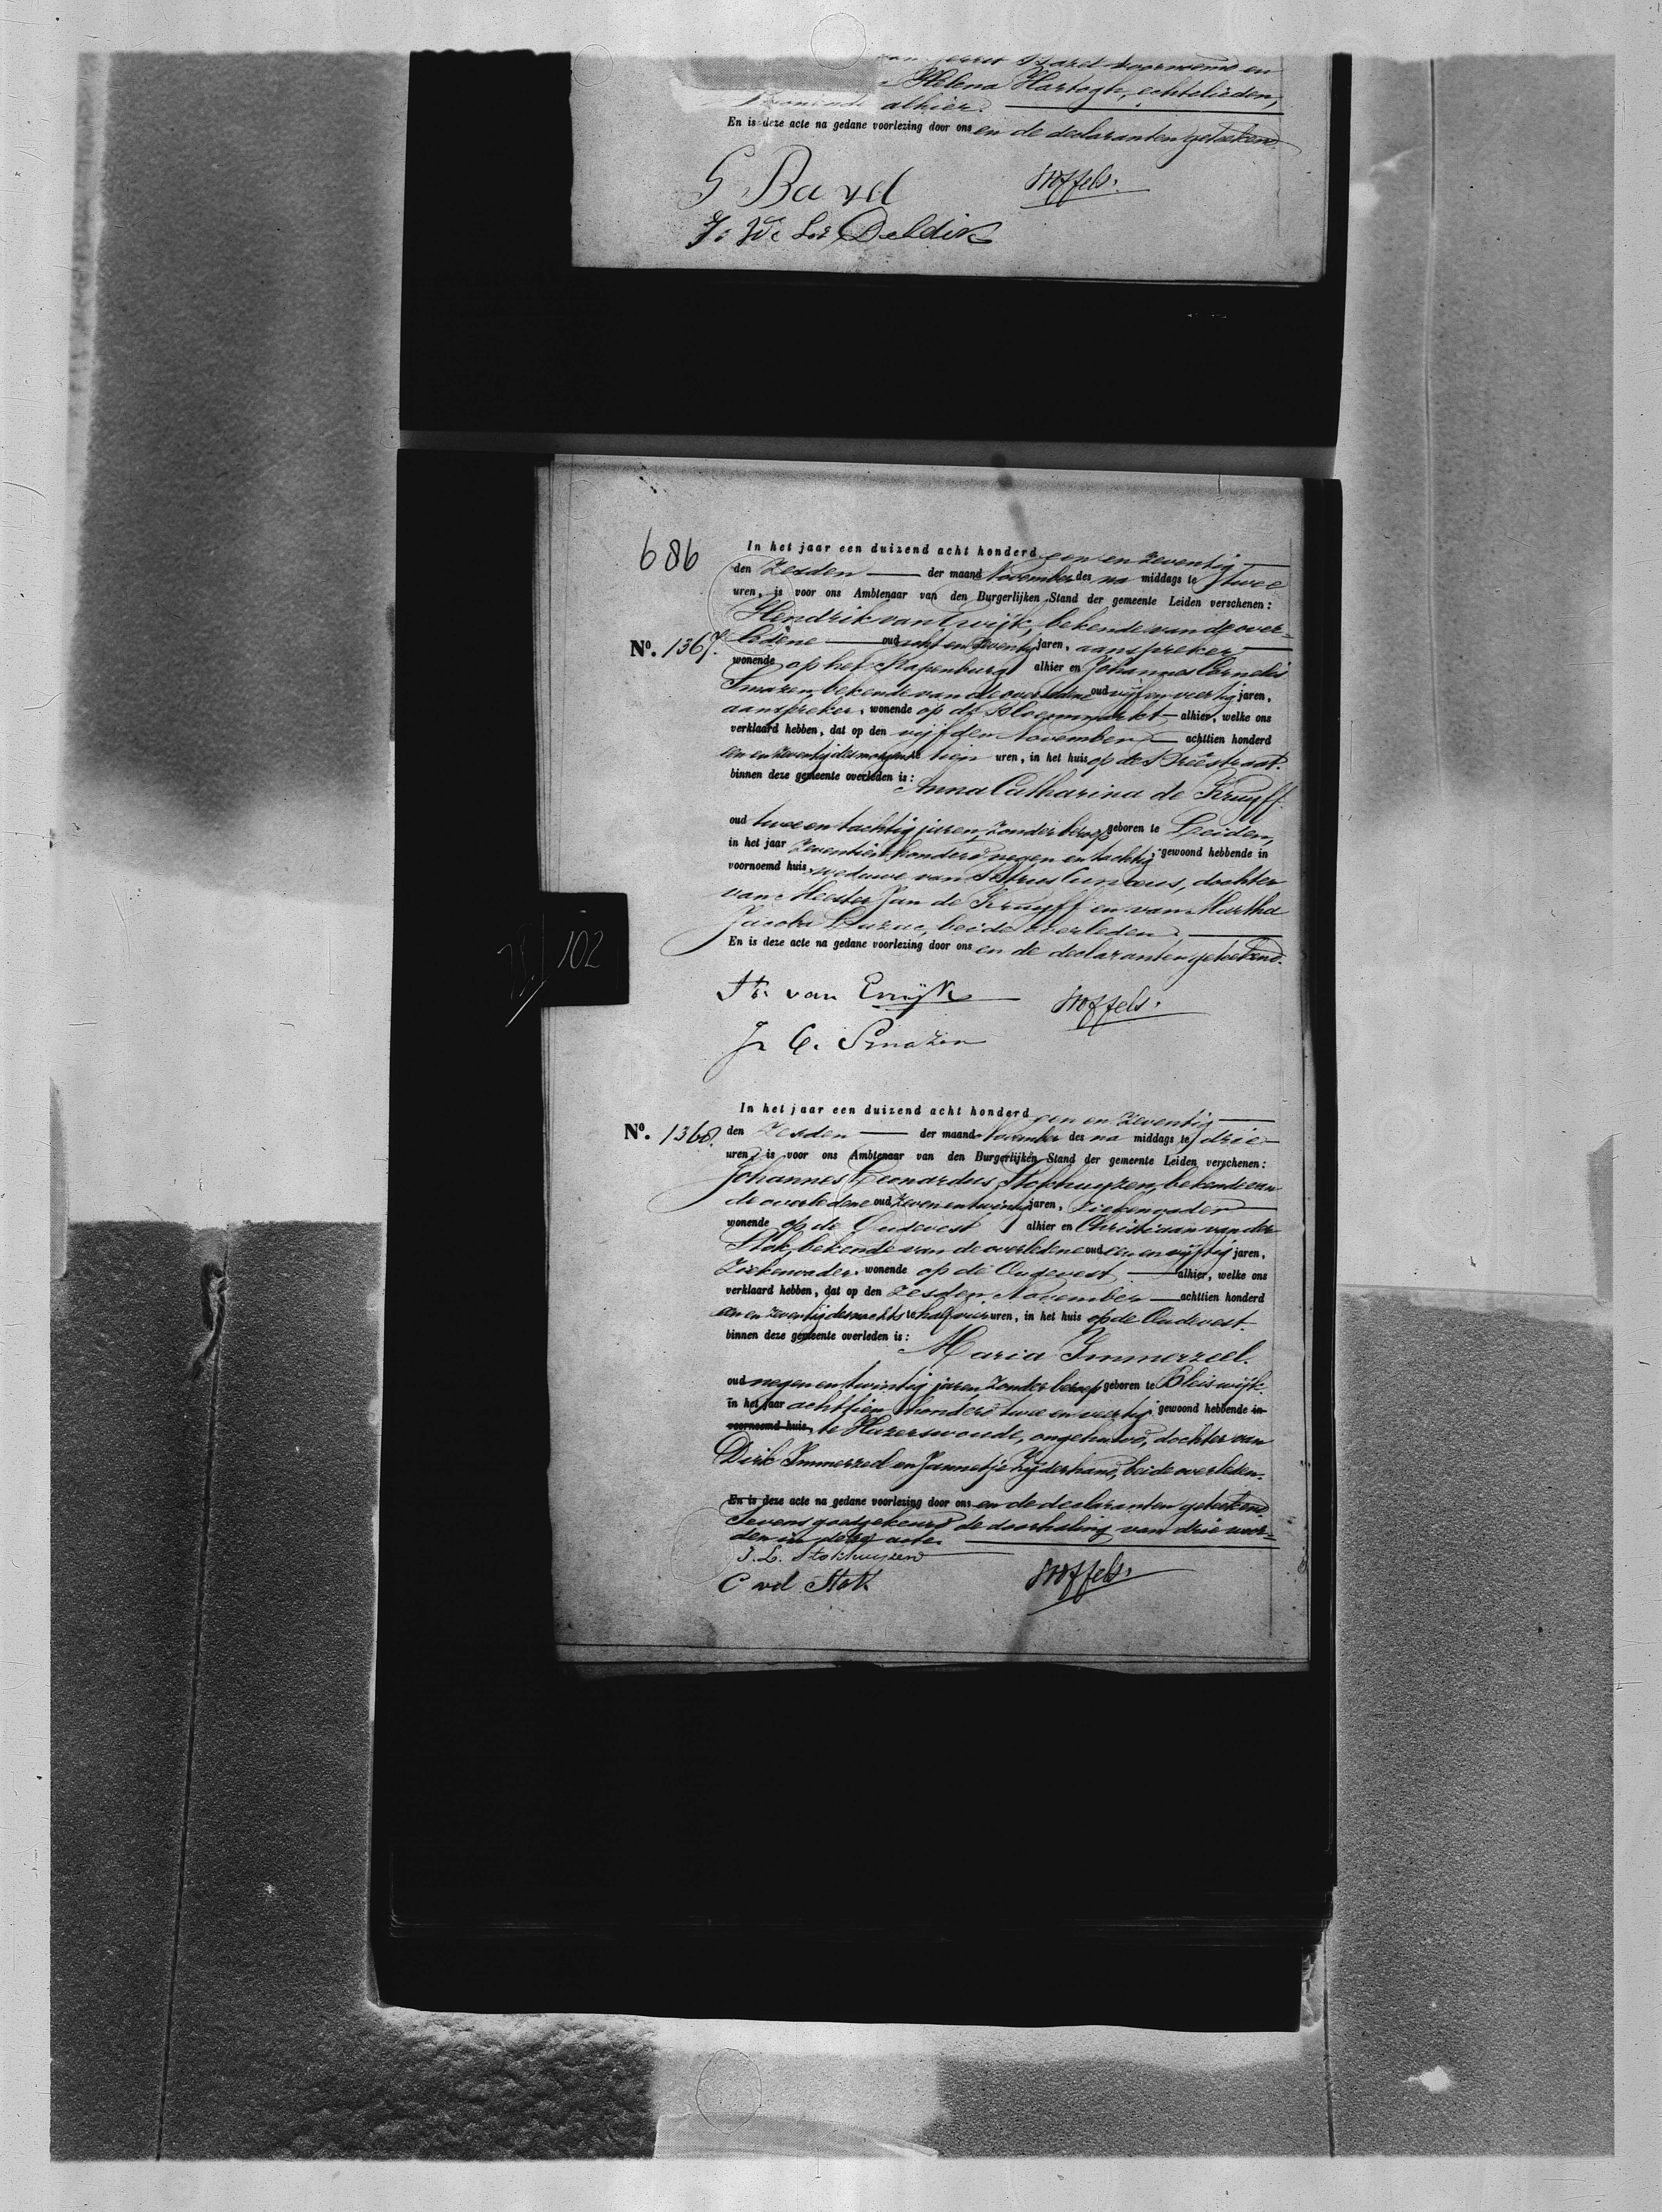 Helena Hartogh, echtelieden,
alhier.
En is deze acte na gedane voorlezing door ons en de declaranten geteekend.
G Bavel
Stoffels.
686
In het jaar een duizend acht honderd een en zeventig
den zesden der maand November des na middags te twee
uren, is voor ons Ambtenaar van den Burgerlijken Stand der gemeente Leiden verschenen:
Hendrik van Ewijk, bekende van de over=
No. 1367. ledene oud acht en zeventig jaren, aanspreker
wonende op het Rapenburg alhier en Johannes Cornelis
Smazen, bekende van de overledene oud vijf en veertig jaren,
aanspreker, wonende op de Bloemmarkt alhier, welke ons
verklaard hebben, dat op den vijfden November achttien honderd
een en zeventig des morgens te tien uren, in het huis op de Breestraat.
binnen deze gemeente overleden is: Anna Catharina de Kruyff.
oud twee en tachtig jaren, zonder beroep geboren te Leiden,
in het jaar zeventien honderd negen en tachtig, gewoond hebbende in
voornoemd huis, weduwe van Petrus Cunaeus, dochter
van Meester Jan de Kruyff en van Martha
Jacoba Luzac, beide overleden.
En is deze acte na gedane voorlezing door ons en de declaranten geteekend.
102
H. van Ewijk
Stoffels.
J. C. Smazen
In het jaar een duizend acht honderd een en zeventig
No. 1368. den zesden der maand November des na middags te drie
uren, is voor ons Ambtenaar van den Burgerlijken Stand der gemeente Leiden verschenen:
Johannes Leonardus Stokhuyzen, bekende van
de overledene oud zeven en twintig jaren, Ziekenvader
wonende op de Oudevest alhier en Christiaan van der
Stok, bekende van de overledene oud een en vijftig jaren,
Ziekenvader wonende op de Oudevest alhier, welke ons
verklaard hebben, dat op den zesden November achttien honderd
een en zeventig des nachts te half vier uren, in het huis op de Oudevest.
binnen deze gemeente overleden is: Maria Immerzeel.
oud negen en twintig jaren, zonder beroep geboren te Bleiswijk.
in het jaar achttien honderd twee en veertig, gewoond hebbende in
voornoemd huis, te Hazerswoude, ongehuwd, dochter van
Dirk Immerzeel en Jannetje Zijderhand, beide overleden.
En is deze acte na gedane voorlezing door ons en de declaranten geteekend.
Tevens goedgekeurd de doorhaling van drie woor=
den in deze acte.
J. L. Stokhuyzen
C vd Stok
Stoffels.